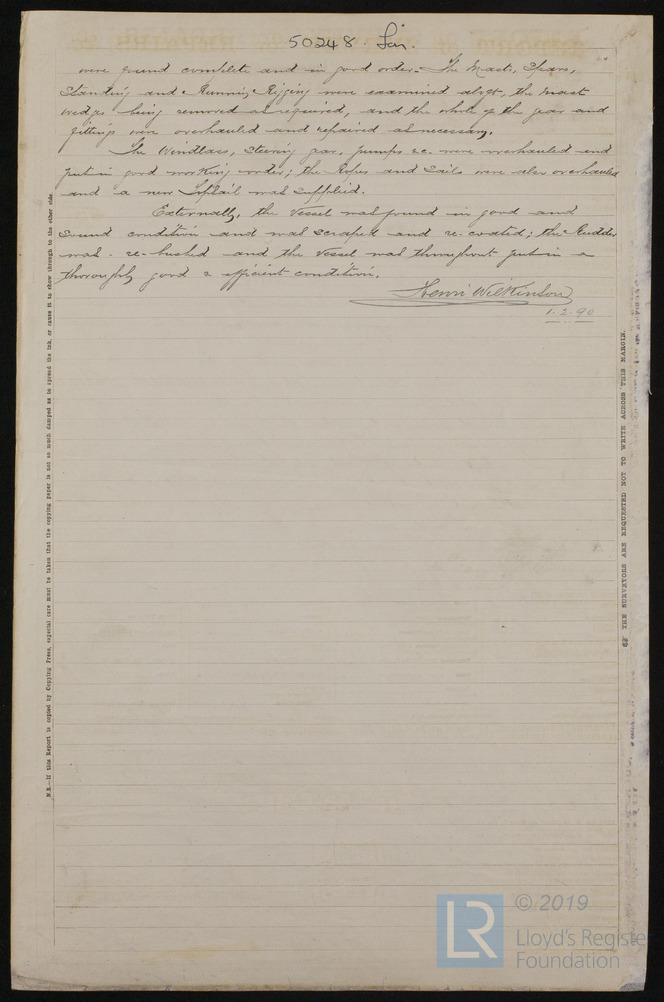 50248. Lin.
were found complete and in good order. The Masts, Spars,
Standing and Running Rigging were examined aloft, the mast
wedges being removed as required, and the whole of the gear and
fittings were overhauled and repaired as necessary.
The Windlass, Steering gear, pumps &c. were overhauled and
put in good working order; the Ropes and Sails were also overhauled
and a new Topsail was supplied.
Externally, the Vessel was found in good and
sound condition and was scraped and re-coated; the Rudder
was re-bushed and the Vessel was throughout put in a
thoroughly good & efficient condition.
Henri Wilkinson
1.2.90
N.B.—If this Report is copied by Copying Press, especial care must be taken that the copying paper is not so much damped as to spread the ink, or cause it to show through to the other side.
THE SURVEYORS ARE REQUESTED NOT TO WRITE ACROSS THIS MARGIN.
LR
© 2019
Lloyd's Register
Foundation